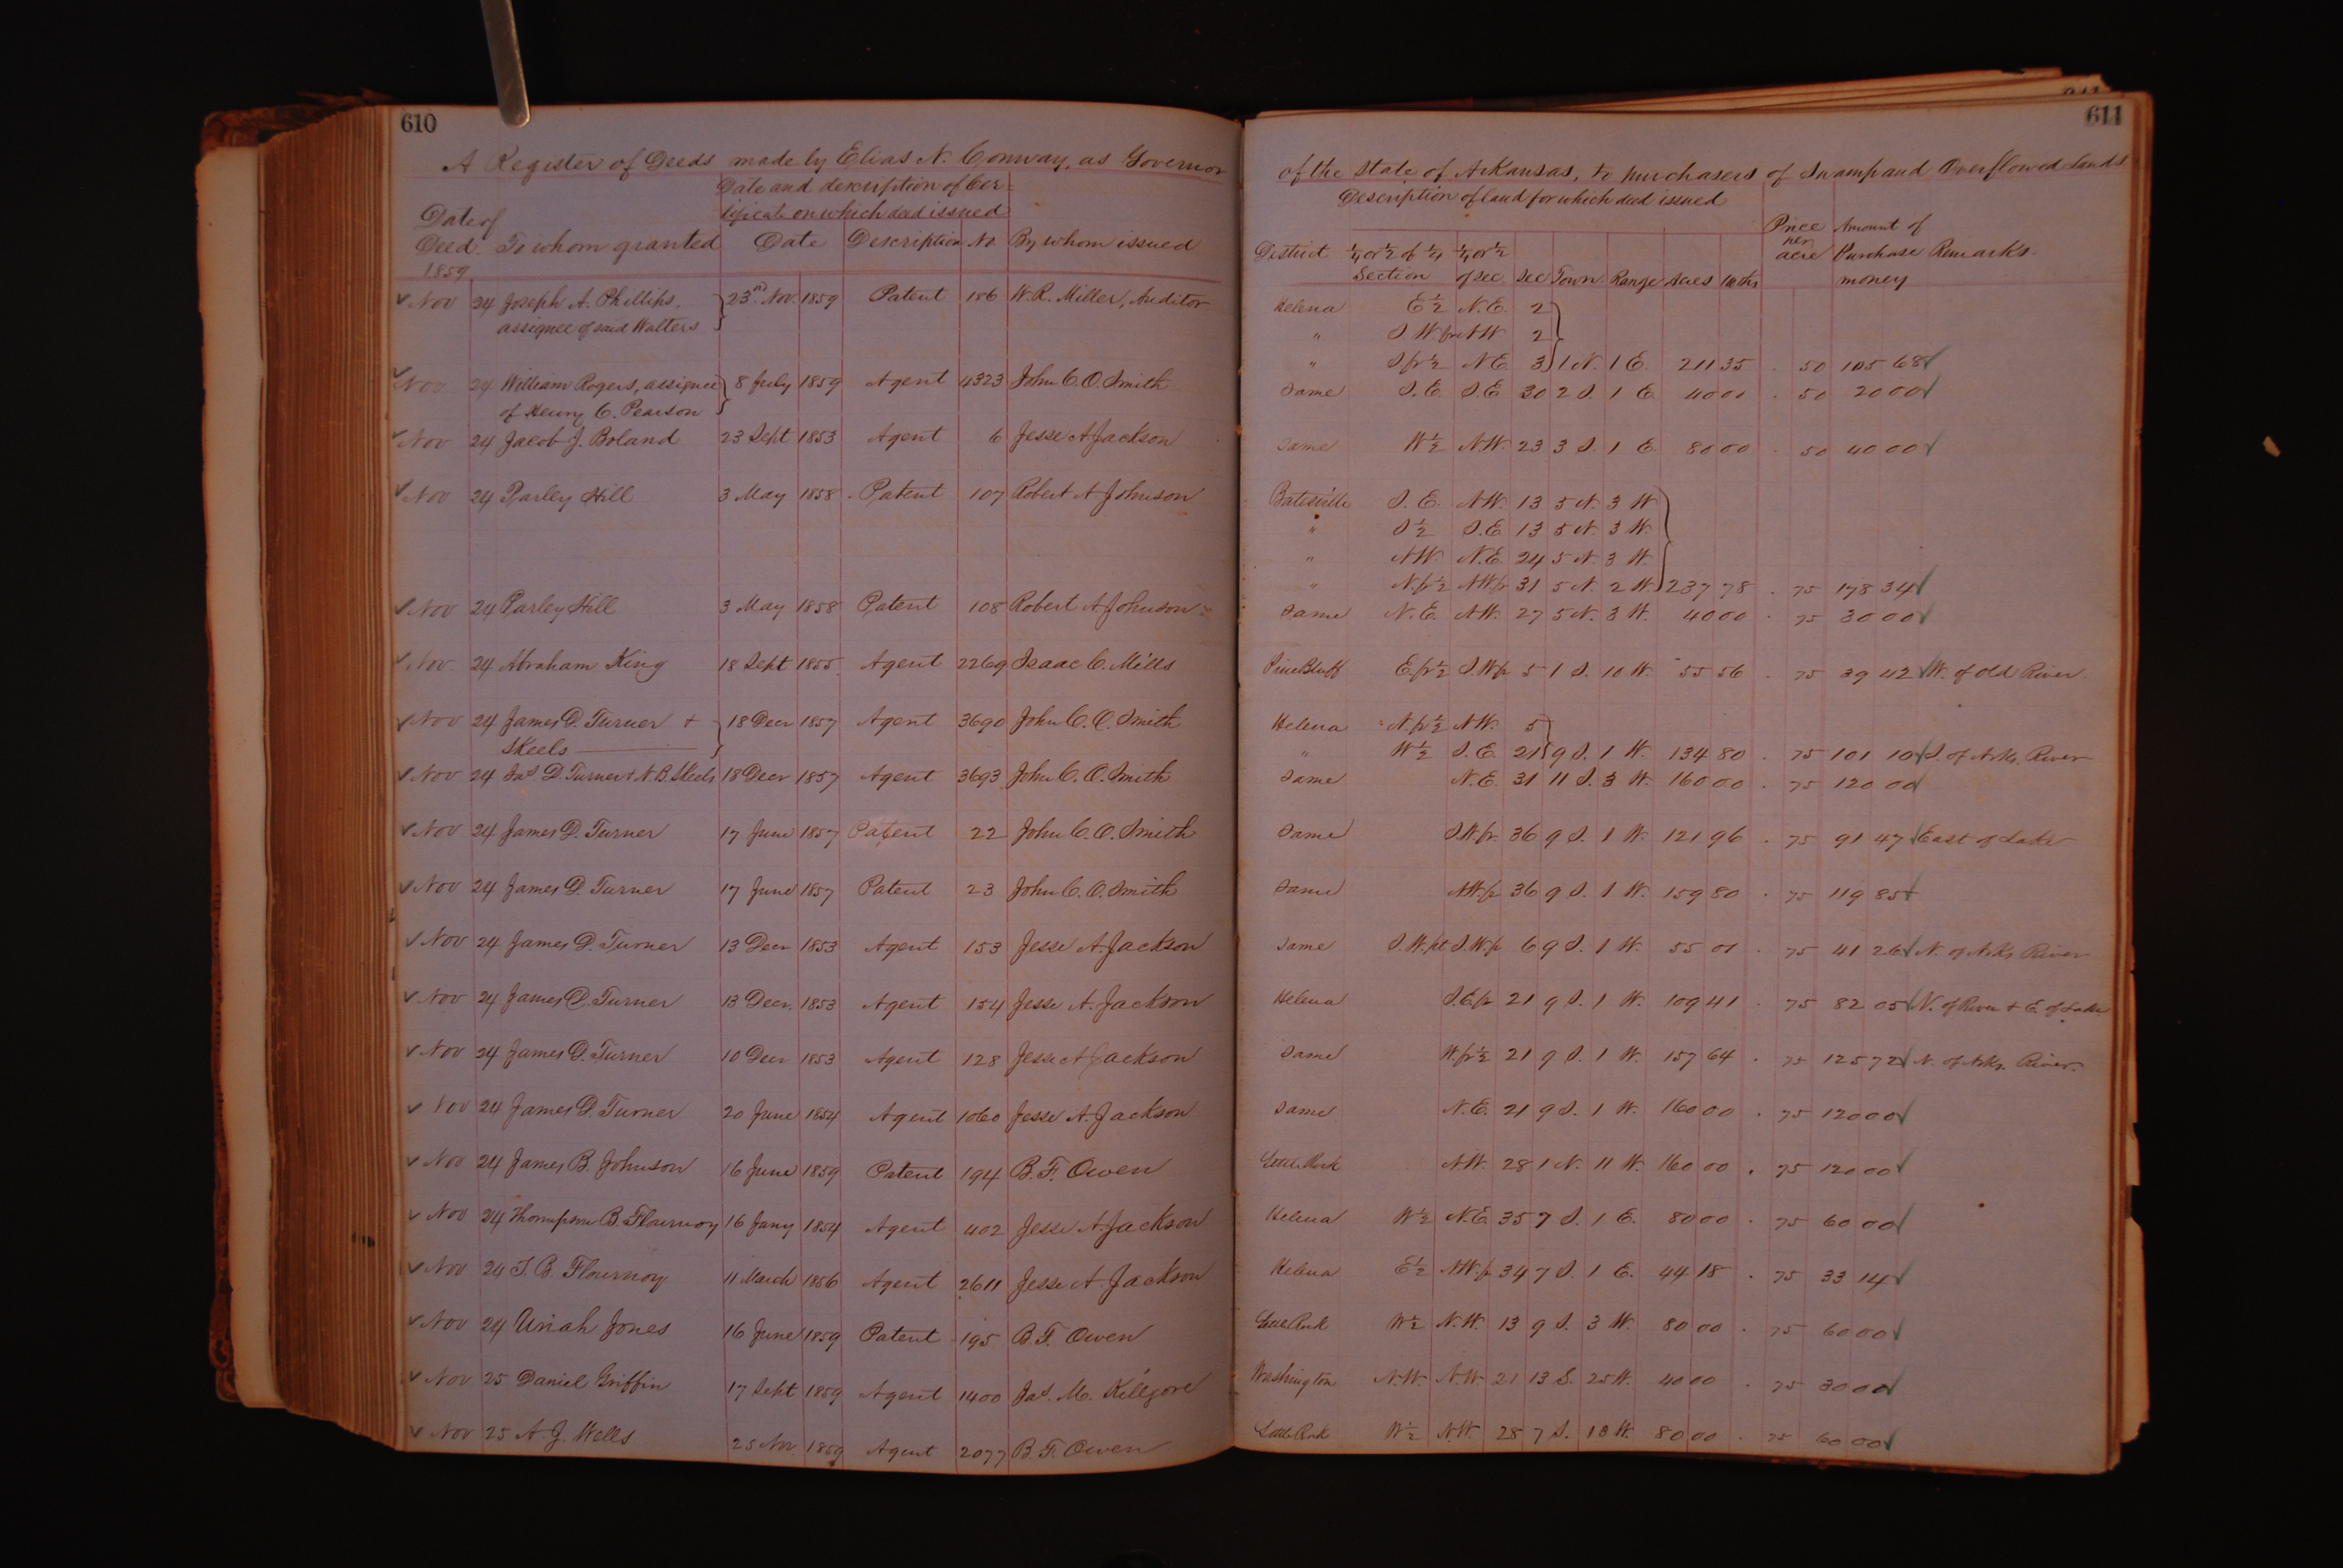 610
A Register of Deeds made by Elias N. Conway, as Governor
Date and description of Cer=
tificate on which deed issued
Date of
Deed. To whom granted Date Description No. By whom issued
1859
Nov 24 Joseph A. Phillips, 23rd Nov. 1859 Patent 186 W. R. Miller, Auditor
assignee of said Walters
Nov 24 William Rogers, assignee 8 July 1859 Agent 4323 John C. O. Smith
of Henry C. Pearson
Nov 24 Jacob J. Boland 23 Sept 1853 Agent 6 Jesse A Jackson
Nov 24 Parley Hill 3 May 1858 Patent 107 Robert A Johnson
Nov 24 Parley Hill 3 May 1858 Patent 108 Robert A Johnson
Nov. 24 Abraham King 18 Sept 1855 Agent 2269 Isaac C. Mills
Nov 24 James D. Turner + 18 Decr 1857 Agent 3690 John C. O. Smith
Skeels
Nov 24 Jas D. Turner + N. B. Skeels 18 Decr 1857 Agent 3693 John C. O. Smith
Nov 24 James D. Turner 17 June 1857 Patent 22 John C. O. Smith
Nov 24 James D. Turner 17 June 1857 Patent 23 John C. O. Smith
Nov 24 James D. Turner 13 Decr 1853 Agent 153 Jesse A. Jackson
Nov 24 James D. Turner 13 Decr. 1853 Agent 154 Jesse A. Jackson
Nov 24 James D. Turner 10 Decr 1853 Agent 128 Jesse A Jackson
Nov 24 James D. Turner 20 June 1854 Agent 1060 Jesse A. Jackson
Nov 24 James B. Johnson 16 June 1859 Patent 194 B. F. Owen
Nov 24 Thompson B. Flournoy 16 Jany 1854 Agent 402 Jesse A. Jackson
Nov 24 T. B. Flournoy 11 March 1856 Agent 2611 Jesse A. Jackson
Nov 24 Uriah Jones 16 June 1859 Patent 195 B. F. Owen
Nov 25 Daniel Griffin 17 Sept 1859 Agent 1400 Jas. M. Killgore
Nov 25 A. J. Wells 25 Nov. 1859 Agent 2077 B. F. Owen
611
of the State of Arkansas, to purchasers of Swamp and Overflowed Lands
Description of land for which deed issued
Price Amount of
District ¼ or ½ of ¼ ¼ or ½ per acre Purchase Remarks.
Section of sec. Sec Town. Range Acres 100ths money
Helena E ½ N.E. 2
" S.W. fr N.W 2
" S fr ½ N E 3 1 N. 1 E. 211 35 . 50 105 68
Same S. E. S.E 30 2 S. 1 E 40 00 . 50 20 00
Same W ½ N.W. 23 3 S. 1 E. 80 00 . 50 40 00
Batesville S. E. N.W. 13 5 N. 3 W
" S ½ S.E 13 5 N. 3 W.
" N.W. N.E. 24 5 N. 3 W.
" N. fr ½ N.W fr 31 5 N. 2 W. 237 78 . 75 178 34
Same N. E. N.W. 27 5 N. 3 W. 40 00 . 75 30 00
Pine Bluff E. fr ½ S.W fr 5 1 S. 10 W. 55 56 . 75 39 42 W. of Old River
Helena N. fr ½ N.W. 5
" W ½ S. E. 21 9 S. 1 W. 134 80 . 75 101 10 S. of Arks. River
Same N. E. 31 11 S. 3 W. 160 00 . 75 120 00
Same S.W. fr. 36 9 S. 1 W. 121 96 . 75 91 47 East of Lake
Same N.W. fr 36 9 S. 1 W. 159 80 . 75 119 85
Same S.W. pt S.W. fr 6 9 S. 1 W. 55 01 . 75 41 26 N. of Arks River
Helena S.E. fr 21 9 S. 1 W. 109 41 . 75 82 05 N. of River + E. of Lake
Same W. fr ½ 21 9 S. 1 W. 157 64 . 75 125 72 N. of Arks. River.
Same N. E. 21 9 S. 1 W. 160 00 . 75 120 00
Little Rock N.W. 28 1 N. 11 W. 160 00 . 75 120 00
Helena W ½ N.E. 35 7 S. 1 E. 80 00 . 75 60 00
Helena E ½ N.W. fr 34 7 S. 1 E. 44 18 . 75 33 14
Little Rock W ½ N.W. 13 9 S. 3 W. 80 00 . 75 60 00
Washington N.W. N.W. 21 13 S. 25 W. 40 00 . 75 30 00
Little Rock W ½ N.W. 28 7 S. 18 W. 80 00 . 75 60 00